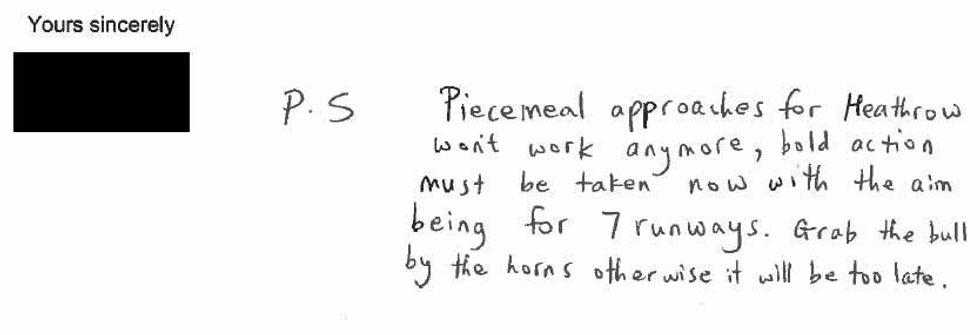 Yours sincerely
P.S Piecemeal approaches for Heathrow
won't work anymore, bold action
must be taken now with the aim
being for 7 runways. Grab the bull
by the horns otherwise it will be too late.